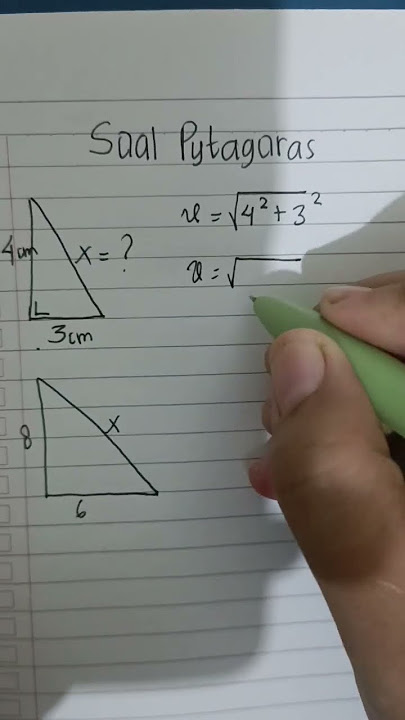 Saal Pytagaras
4cm
x = ?
3cm
x = √4² + 3²
x = √
8
x
6